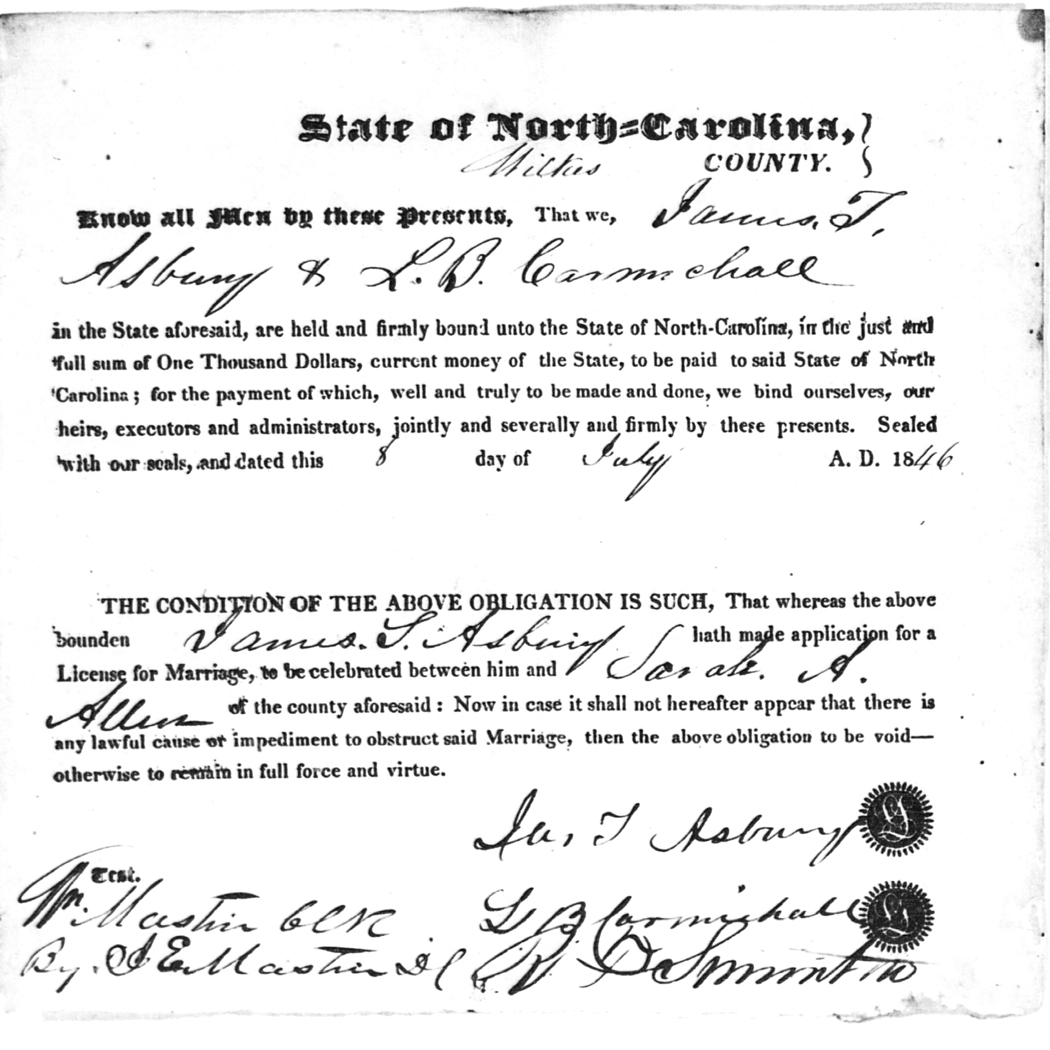 State of North-Carolina,
Wilkes COUNTY.
Know all Men by these Presents, That we, James. T.
Asbury & L. B. Carmichall
in the State aforesaid, are held and firmly bound unto the State of North-Carolina, in the just and
full sum of One Thousand Dollars, current money of the State, to be paid to said State of North
Carolina; for the payment of which, well and truly to be made and done, we bind ourselves, our
heirs, executors and administrators, jointly and severally and firmly by these presents. Sealed
with our seals, and dated this 8 day of July A. D. 1846
THE CONDITION OF THE ABOVE OBLIGATION IS SUCH, That whereas the above
bounden James. T. Asbury hath made application for a
License for Marriage, to be celebrated between him and Sarah. A.
Allen of the county aforesaid: Now in case it shall not hereafter appear that there is
any lawful cause or impediment to obstruct said Marriage, then the above obligation to be void—
otherwise to remain in full force and virtue.
Jas T Asbury
Test.
Wm. Mastin Clk L B Carmichall
By. J E Mastin D C R. D Simonton